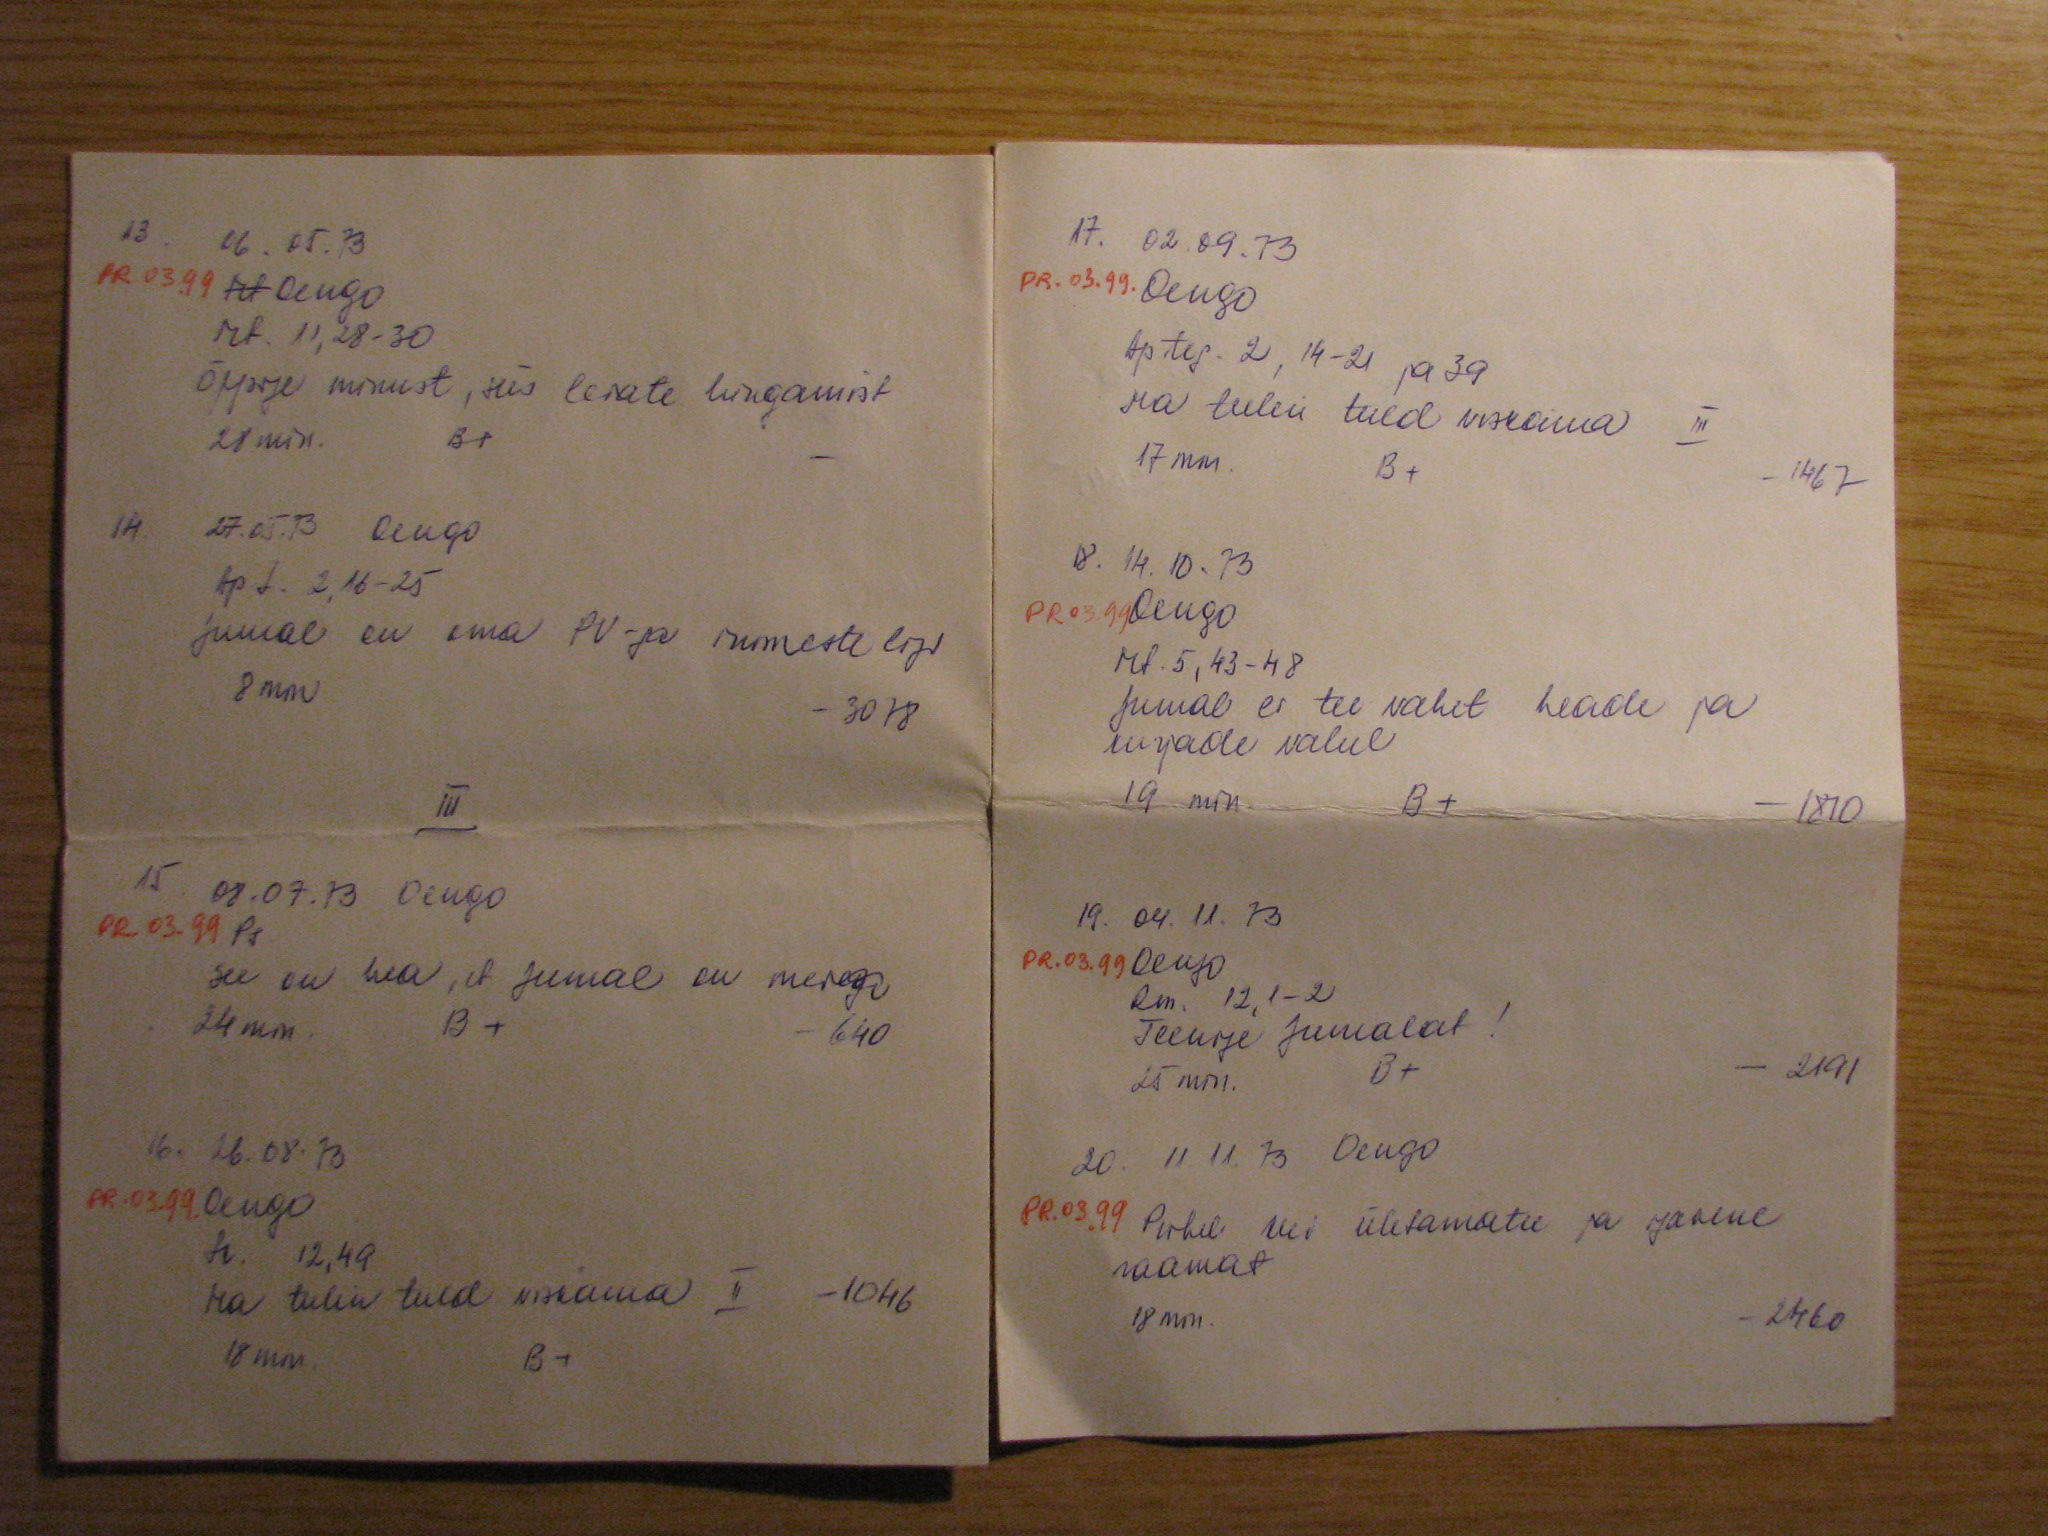 13. 06.05.73
PR 03.99 Mt Oengo
Mt. 11,28-30
Õppige minust, siis leiate hingamist
28 min. B+ –
14. 27.05.73 Oengo
Ap t. 2,16-25
Jumal on oma PV-ja inimeste ligi
8 min
- 3078
III
15. 08.07.73 Oengo
PR 03.99 Ps
See on hea, et Jumal on meiega
24 min. B+ - 640
16. 26.08.73
PR.03.99. Oengo
Lk. 12,49
Ma tulin tuld viskama II -1046
18 min. B+
17. 02.09.73
PR.03.99. Oengo
Ap teg. 2, 14-21 ja 39
Ma tulin tuld viskama III
17 min. B+ - 1467
18. 14.10.73
PR 03.99 Oengo
Mt. 5, 43-48
Jumal ei tee vahet heade ja
kurjade vahel
19 min. B+ - 1810
19. 04.11.73
PR.03.99 Oengo
Rm. 12,1-2
Teenige Jumalat!
25 min. B+ - 2191
20. 11.11.73 Oengo
PR.03.99 Piibel kui ületamatu ja igavene
raamat
18 min. - 2460